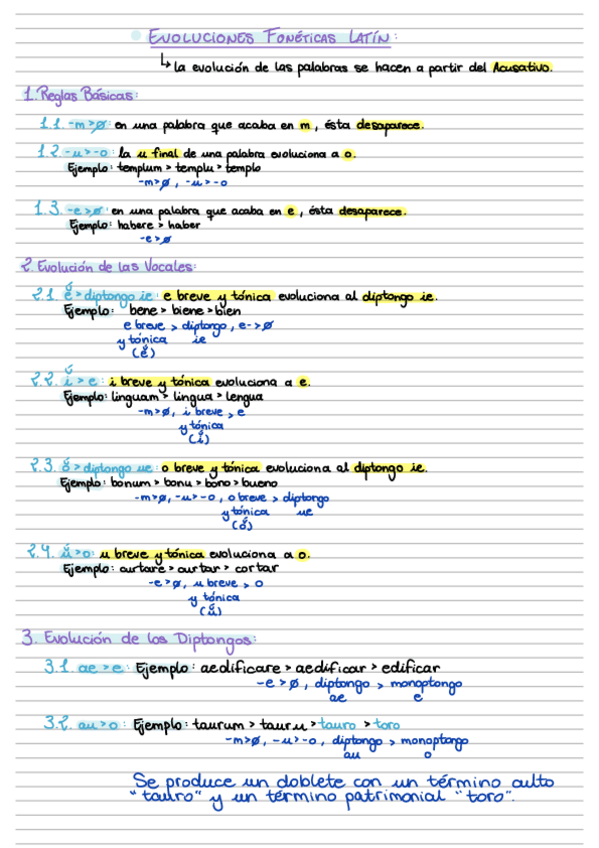 EVOLUCIONES FONÉTICAS LATÍN:
↳ La evolución de las palabras se hacen a partir del Acusativo.
1. Reglas Básicas:
1.1. -m>ø: en una palabra que acaba en m, ésta desaparece.
1.2. -u>-o: la u final de una palabra evoluciona a o.
Ejemplo: templum > templu > templo
-m>ø, -u>-o
1.3. -e>ø: en una palabra que acaba en e, ésta desaparece.
Ejemplo: habere > haber
-e>ø
2. Evolución de las Vocales:
2.1. ĕ́ > diptongo ie: e breve y tónica evoluciona al diptongo ie.
Ejemplo: bene > biene > bien
e breve > diptongo, e->ø
y tónica ie
(ĕ́)
2.2. ĭ́ > e: i breve y tónica evoluciona a e.
Ejemplo: linguam > lingua > lengua
-m>ø, i breve > e
y tónica
(ĭ́)
2.3. ŏ́ > diptongo ue: o breve y tónica evoluciona al diptongo ie.
Ejemplo: bonum > bonu > bono > bueno
-m>ø, -u>-o, o breve > diptongo
y tónica ue
(ŏ́)
2.4. ŭ́>o: u breve y tónica evoluciona a o.
Ejemplo: curtare > curtar > cortar
-e>ø, u breve > o
y tónica
(ŭ́)
3. Evolución de los Diptongos:
3.1. ae>e: Ejemplo: aedificare > aedificar > edificar
-e>ø, diptongo > monoptongo
ae e
3.2. au>o: Ejemplo: taurum > tauru > tauro > toro
-m>ø, -u>-o, diptongo > monoptongo
au o
Se produce un doblete con un término culto
"tauro" y un término patrimonial "toro".